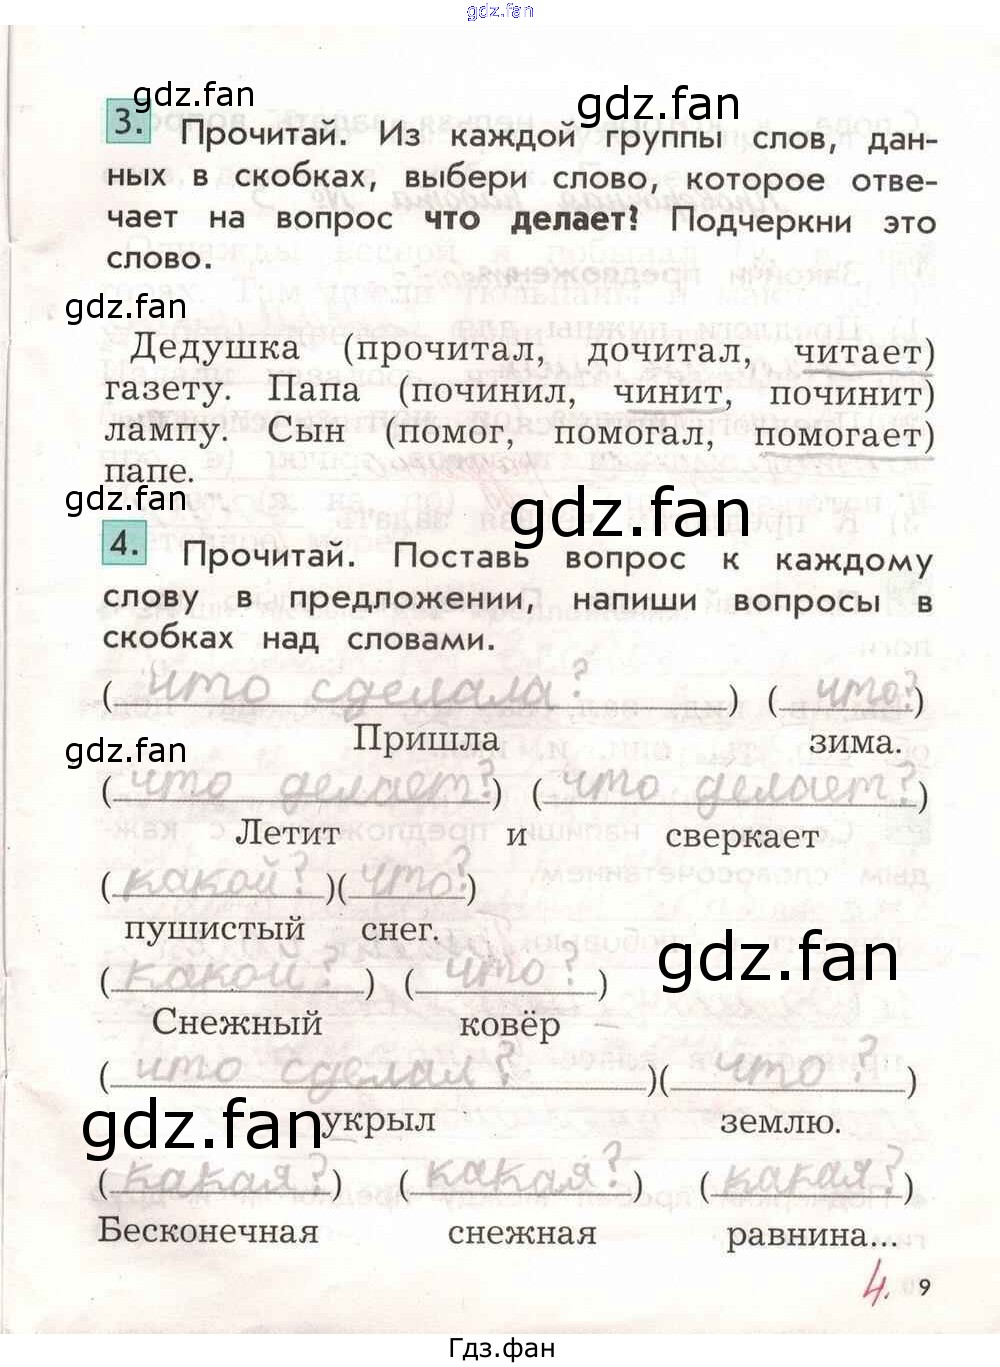 gdz.fan
gdz.fan
gdz.fan
3. Прочитай. Из каждой группы слов, дан-
ных в скобках, выбери слово, которое отве-
чает на вопрос что делает? Подчеркни это
слово.
gdz.fan
Дедушка (прочитал, дочитал, читает)
газету. Папа (починил, чинит, починит)
лампу. Сын (помог, помогал, помогает)
папе.
gdz.fan
gdz.fan
4. Прочитай. Поставь вопрос к каждому
слову в предложении, напиши вопросы в
скобках над словами.
(что сделала?) (что?)
Пришла зима.
gdz.fan
(что делает?) (что делает?)
Летит и сверкает
(какой?)(что?)
пушистый снег.
gdz.fan
(какой?) (что?)
Снежный ковёр
(что сделал?)(что?)
gdz.fan
укрыл землю.
(какая?) (какая?) (какая?)
Бесконечная снежная равнина...
4. 9
Гдз.фан